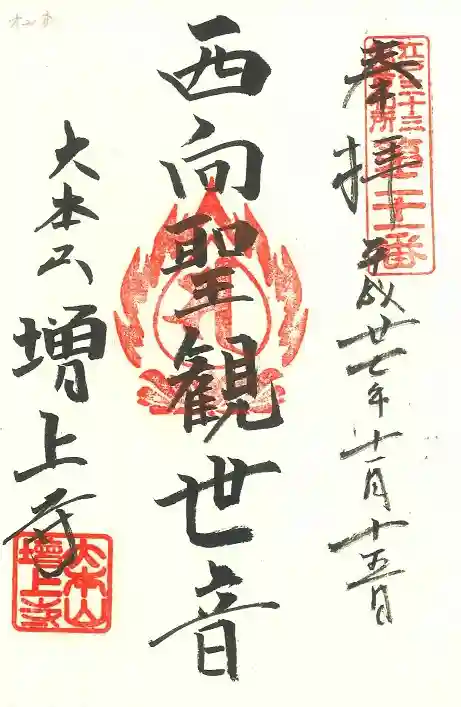 奉拝
平成廿七年十一月十五日
江戸三十三
観音札所
第二十一番
西向聖観世音
大本山
増上寺
大本山
増上寺